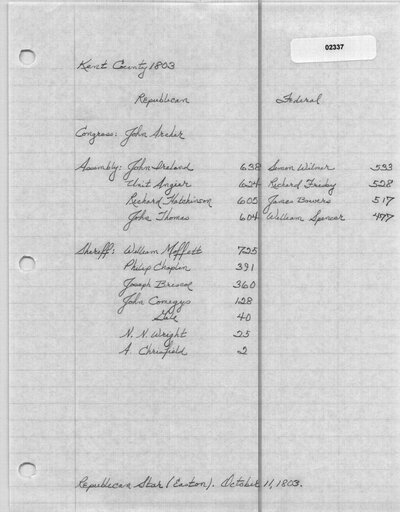 02337
Kent County 1803
Republican Federal
Congress: John Archer
Assembly: John Ireland 638 Simon Wilmer 533
Unit Angier 624 Richard Frisby 528
Richard Hatchinson 605 James Bowers 517
John Thomas 604 William Spencer 477
Sheriff: William Moffett 725
Philip Chaplin 391
Joseph Briscoe 360
John Comegys 128
Gale 40
N. N. Wright 25
A. Chrisfield 2
Republican Star (Easton). October 11, 1803.